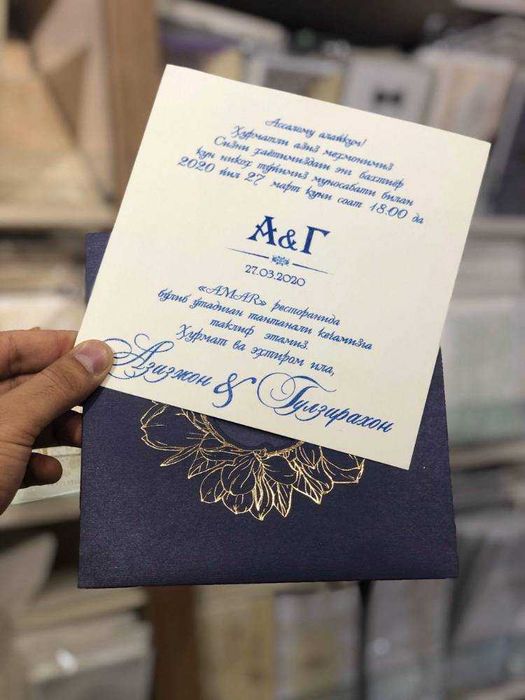 Ассалому алайкум!
Ҳурматли азиз меҳмонимиз
Сизни ҳаётимиздаги энг бахтиёр
кун никоҳ тўйимиз муносабати билан
2020 йил 27 март куни соат 18:00 да
А&Г
27.03.2020
«AMAR» ресторанида
бўлиб ўтадиган тантанали кечамизга
таклиф этамиз.
Ҳурмат ва эҳтиром ила,
Азизжон & Гулзирахон